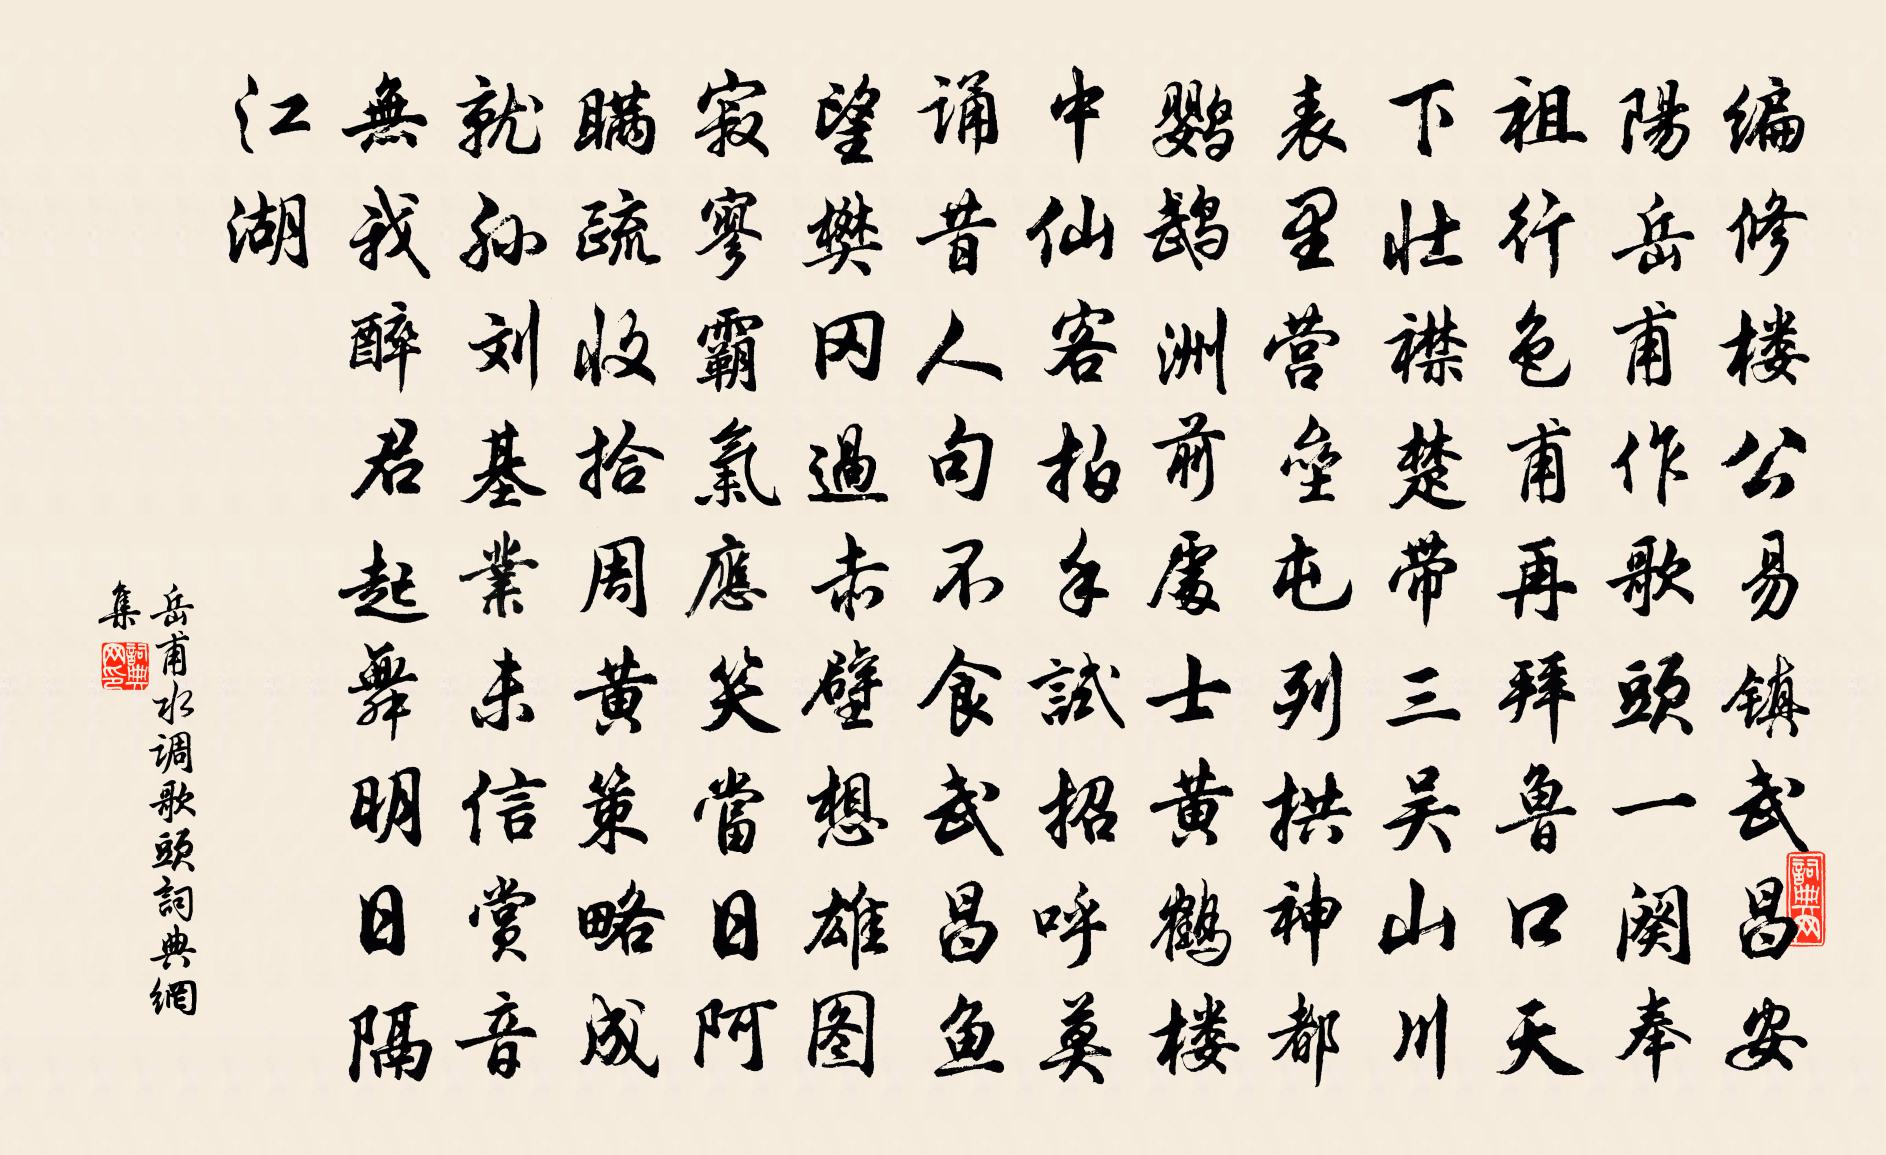 编修楼公易镇武昌安
陽岳甫作歌頭一阕奉
祖行色甫再拜鲁口天
下壮襟楚带三吴山川
表里营垒屯列拱神都
鹦鹉洲前處士黄鹤楼
中仙客拍手試招呼莫
诵昔人句不食武昌鱼
望樊冈過赤壁想雄图
寂寥霸氣應笑當日阿
瞒疏收拾周黄策略成
就孙刘基業未信赏音
無我醉君起舞明日隔
江湖
岳甫水调歌頭詞典網
集
詞典网
詞典网印